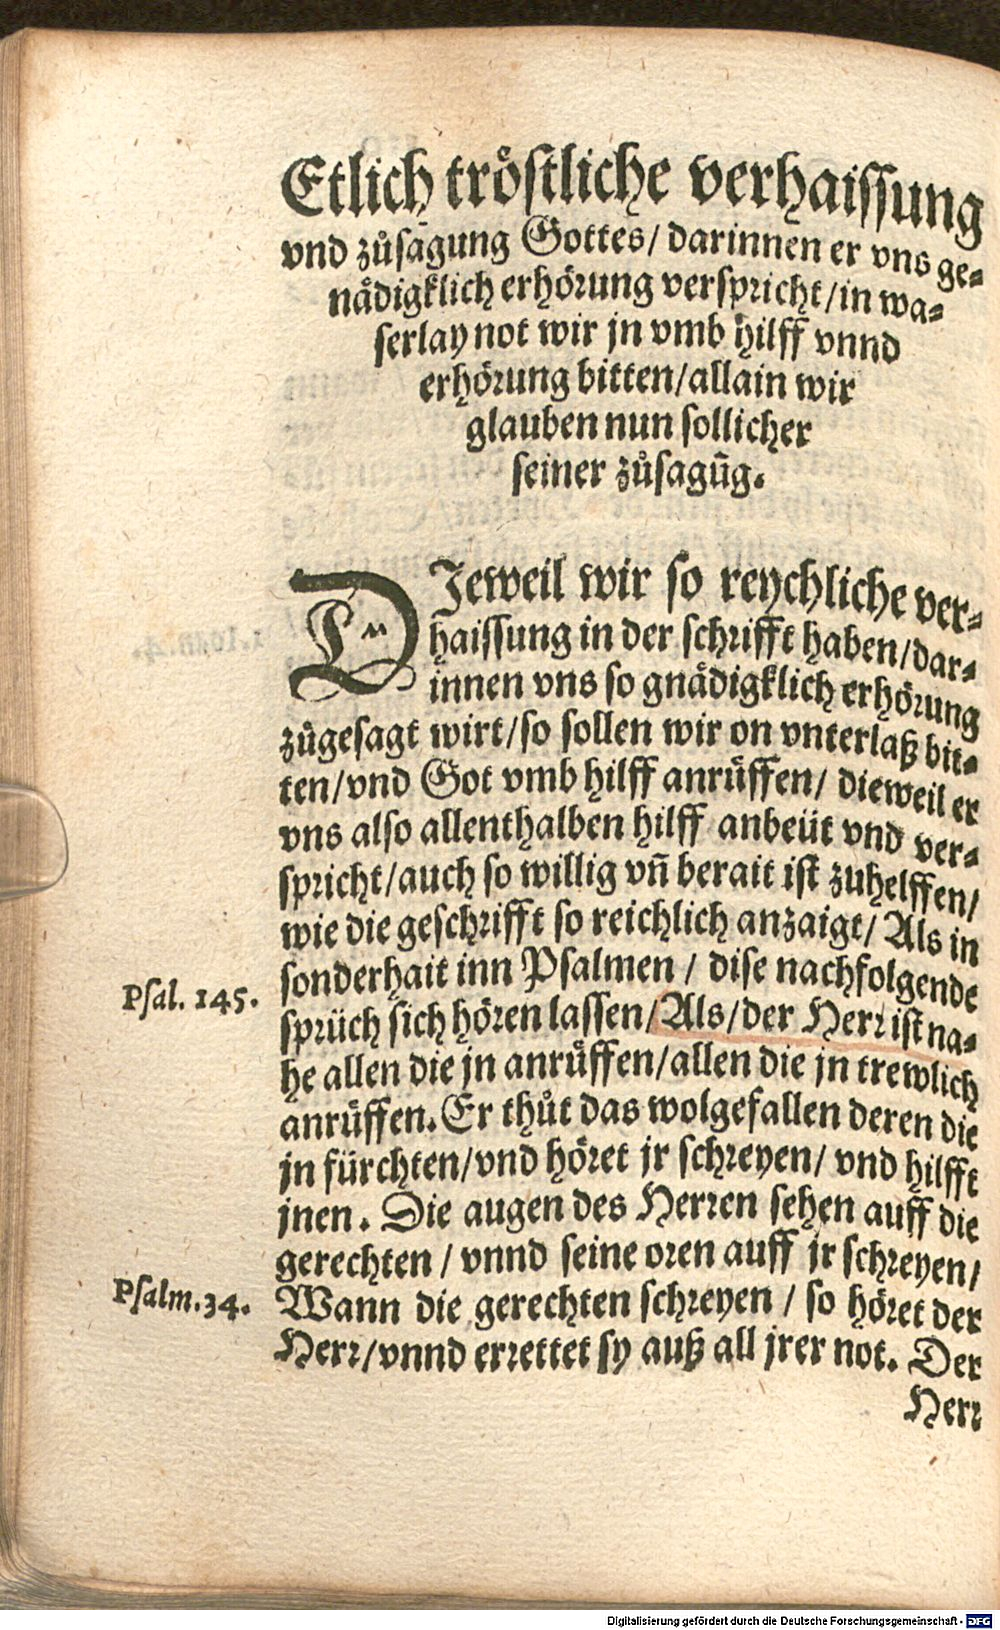 Etlich tröstliche verhaissung
vnd zůsagung Gottes/ darinnen er vns ge-
nådigklich erhörung verspricht/in wa-
serlay not wir jn vmb hilff vnnd
erhörung bitten/allain wir
glauben nun sollicher
seiner zůsagūg.
DJeweil wir so reychliche ver-
haissung in der schrifft haben/dar-
innen vns so gnådigklich erhörung
zůgesagt wirt/so sollen wir on vnterlaß bit-
ten/vnd Got vmb hilff anrüffen/ dieweil er
vns also allenthalben hilff anbeüt vnd ver-
spricht/auch so willig vñ berait ist zuhelffen/
wie die geschrifft so reichlich anzaigt/ Als in
sonderhait inn Psalmen / dise nachfolgende
Psal. 145.
sprüch sich hören lassen/Als/der Herr ist na-
he allen die jn anrüffen/allen die jn trewlich
anrüffen. Er thůt das wolgefallen deren die
jn fürchten/vnd höret jr schreyen/ vnd hilfft
jnen. Die augen des Herren sehen auff die
gerechten / vnnd seine oren auff jr schreyen/
Psalm. 34.
Wann die gerechten schreyen / so höret der
Herr/vnnd errettet sy auß all jrer not. Der
Herr
Digitalisierung gefördert durch die Deutsche Forschungsgemeinschaft - DFG